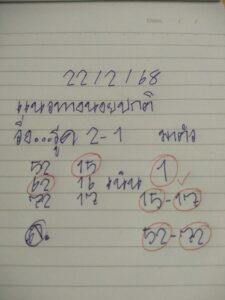 22/2/68
แนวทางหวยปกติ
วิ่ง...รูด 2-1
52 15
62 16 เน้น 1
72 17 15-17
52-72